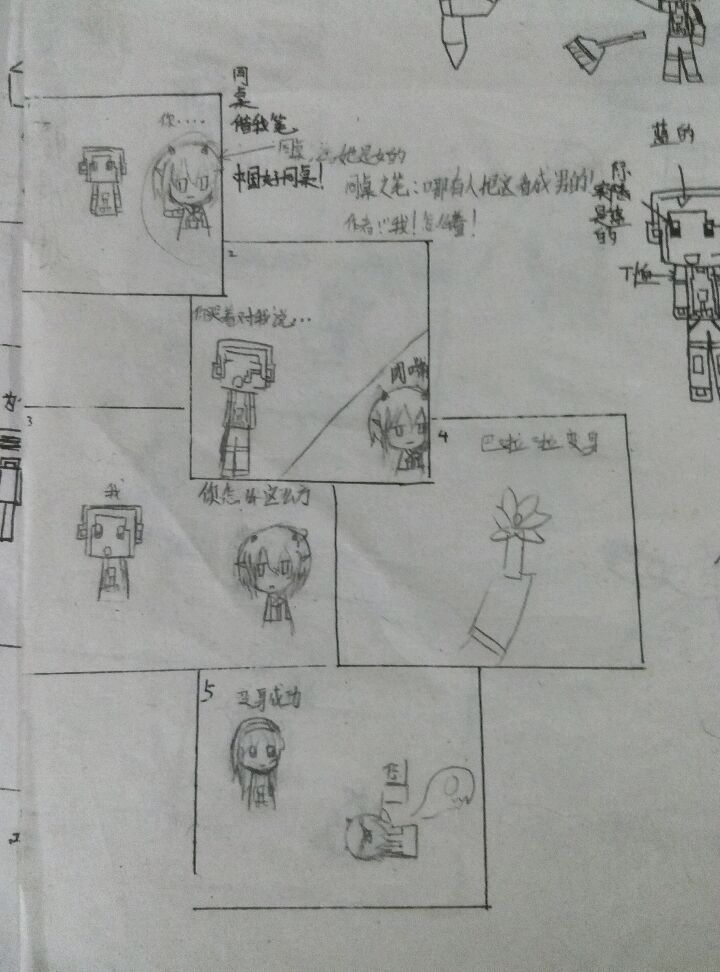 同
桌
借我笔
你....
同桌,她是女的
中国好同桌!
同桌之笔:哪有人把这看成男的!
作者:我!怎么着!
蓝的
T恤
2
你哭着对我说...
3
我
你怎么这么方
4
巴啦啦变身
5
变身成功